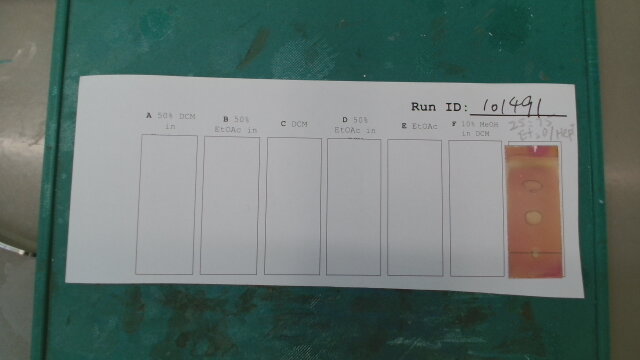 Run ID: 101491
A 50% DCM in
B 50% EtOAc in
C DCM
D 50% EtOAc in
E EtOAc
F 10% MeOH in DCM
Et2O/Hep